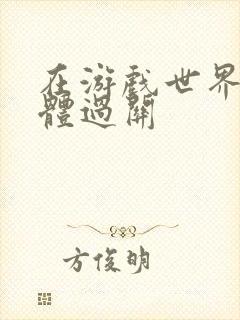 在游戏世界
體過關
方俊明